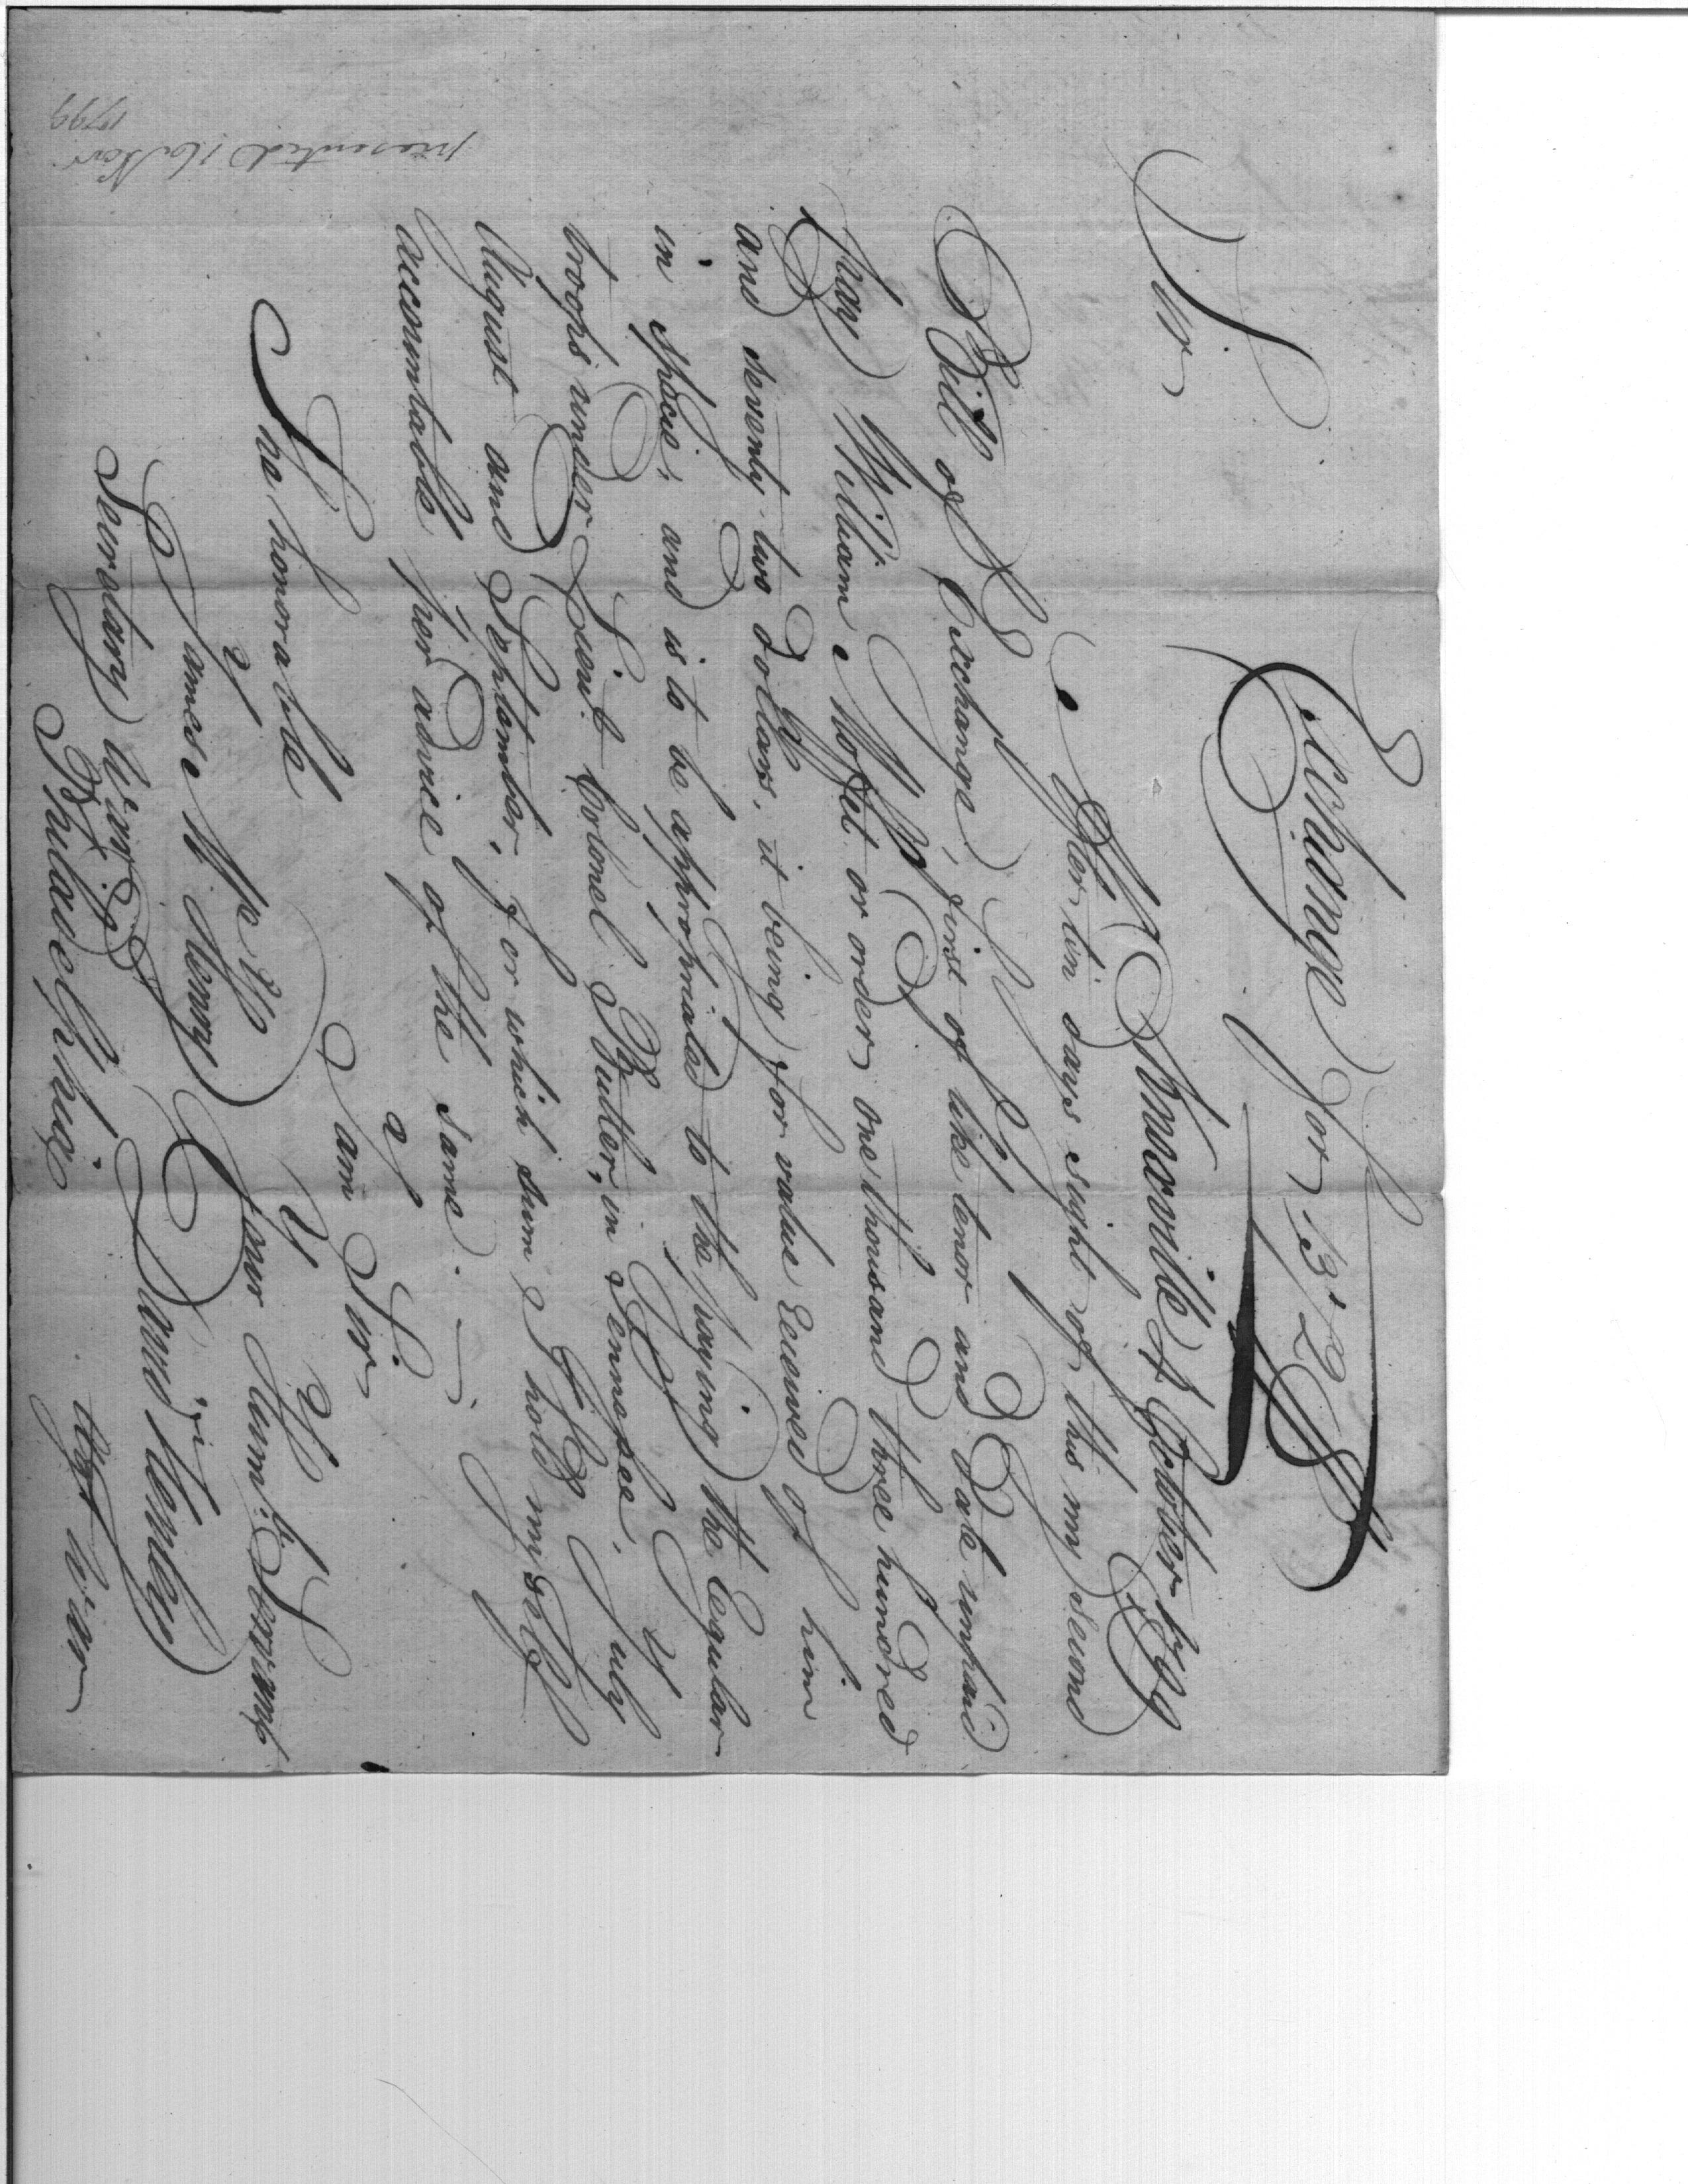 Exchange for 1372 Ds
Knoxville 4 October 1799
Sir
After ten days sight of this my second
Bill of Exchange, first of like tenor and Date unpaid
pay William Moffet or order one thousand three hundred
and seventy two dollars, it being for value Received of him
in specie; and is to be appropriated to the paying the Regular
troops under Lieut. Colonel Butler, in Tennessee, July
August and September, for which sum I hold myself
accountable per advice of the same.
I am Sir
Your Hum: Servant
David Henley
Agt War
The honorable
James Mc Henry
Secretary War
Philadelphia
presented 16 Nov
1799